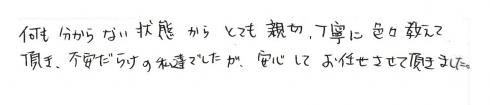 何も分からない状態からとても親切、丁寧に色々教えて
頂き、不安だらけの私達でしたが、安心してお任せさせて頂きました。